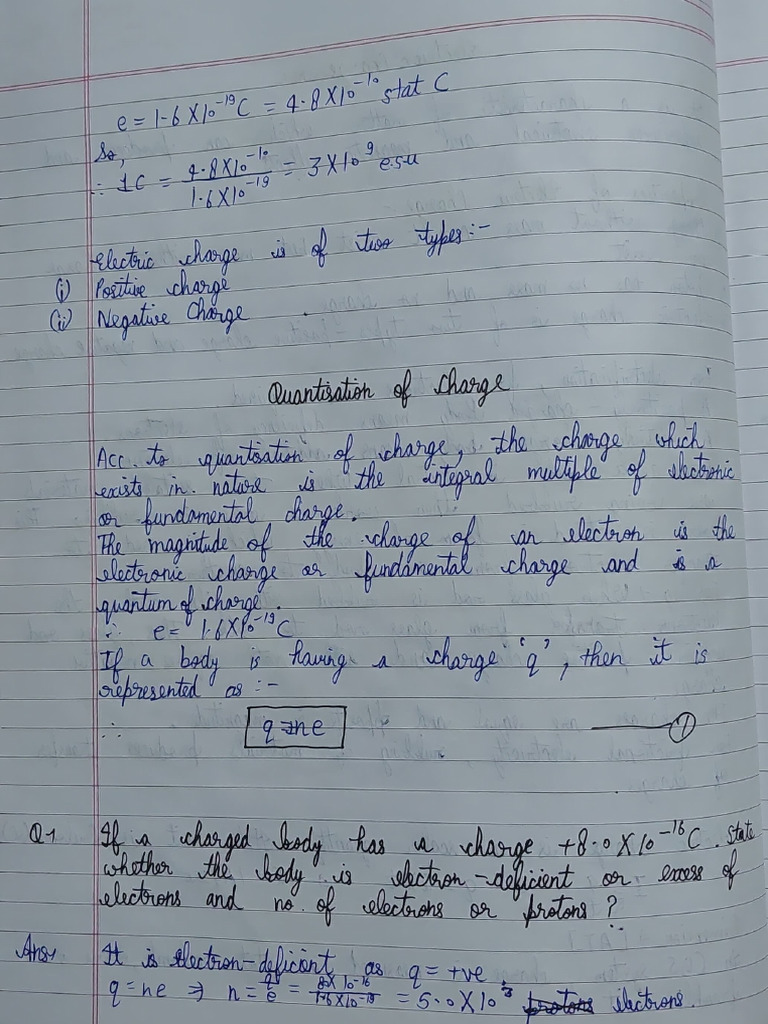 e = 1.6 X 10⁻¹⁹ C = 4.8 X 10⁻¹⁰ stat C
So,
∴ 1C = 4.8X10⁻¹⁰ / 1.6X10⁻¹⁹ = 3 X 10⁹ e.s.u
Electric charge is of two types:-
(i) Positive charge
(ii) Negative Charge
Quantisation of charge
Acc. to quantisation of charge, the charge which
exists in nature is the integral multiple of electronic
or fundamental charge.
The magnitude of the charge of an electron is the
electronic charge or fundamental charge and is a
quantum of charge.
∴ e = 1.6X10⁻¹⁹ C
If a body is having a charge 'q', then it is
represented as :-
∴ q = ne — 1
Q-1 If a charged body has a charge +8.0 X 10⁻¹⁶ C. State
whether the body is electron-deficient or excess of
electrons and no. of electrons or protons?
Ans- It is electron-deficient as q = +ve.
q = ne ⇒ n = q/e = 8X10⁻¹⁶ / 1.6X10⁻¹⁹ = 5.0 X 10³ protons electrons.